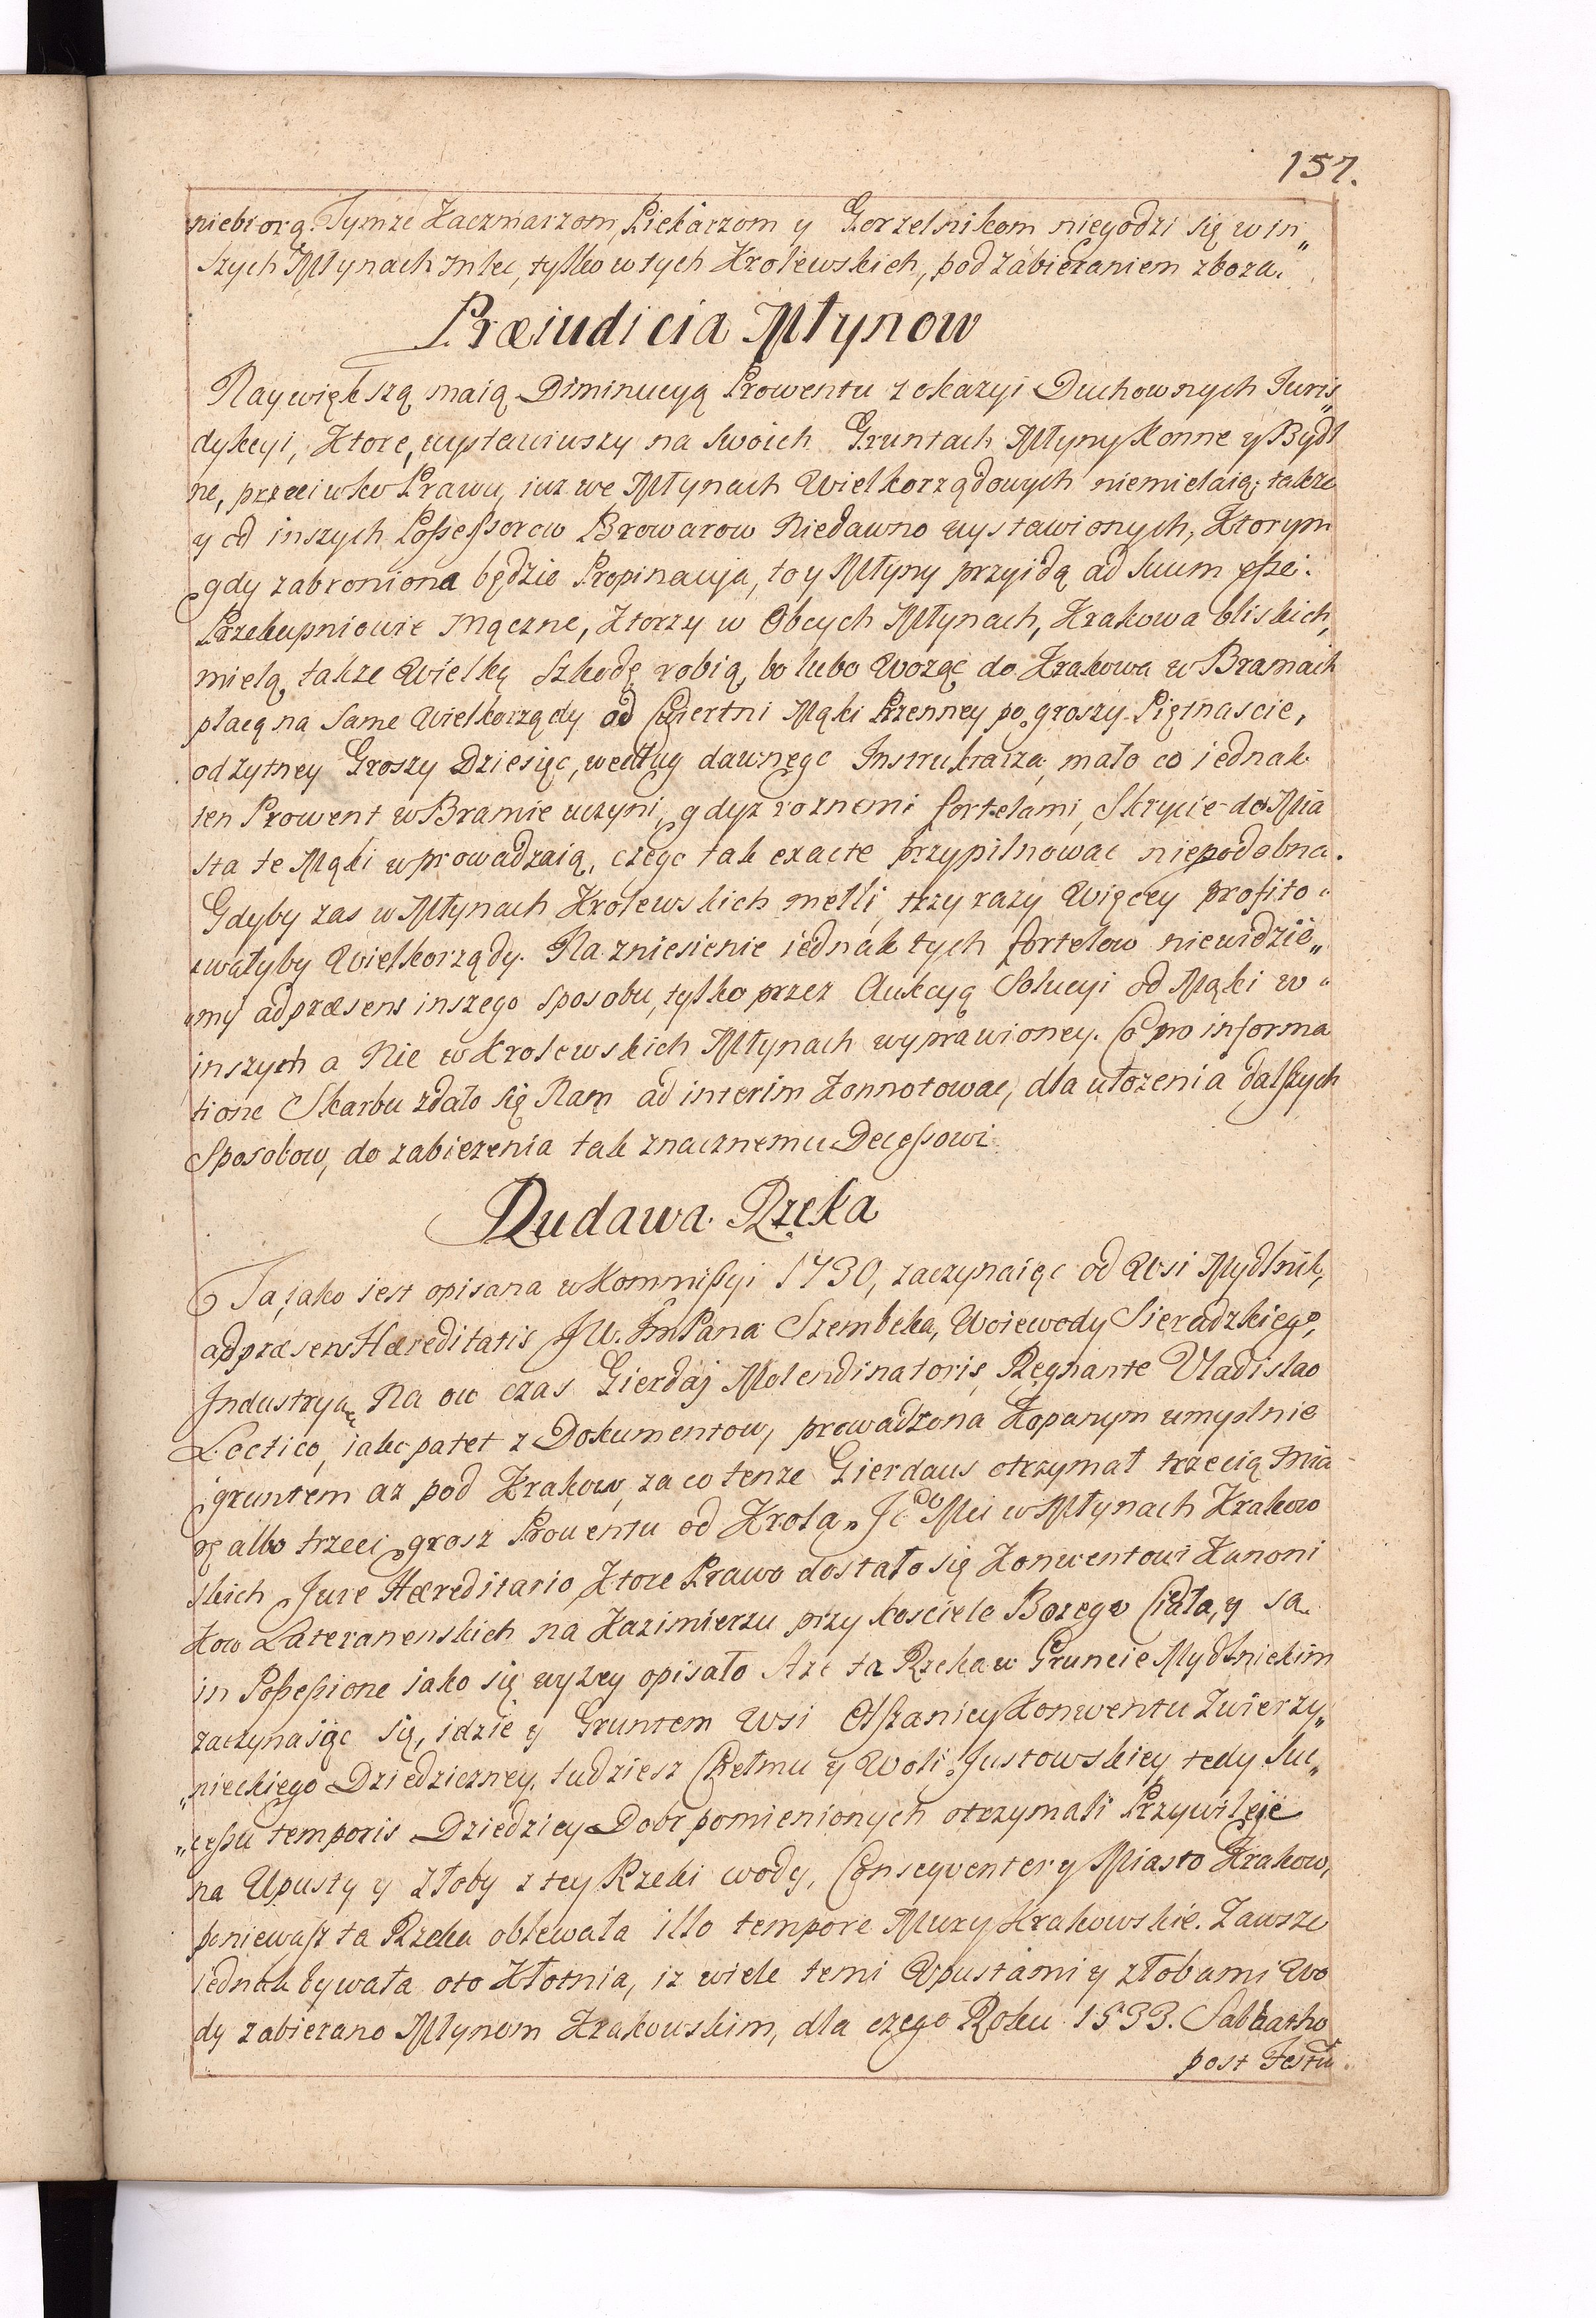 157.
niebiorą. Tymze Kaczmarzom, Piekarzom y Gorzelnikom niegodzi się w in„
szych Młynach mlec, tylko w tych Krolewskich, pod zabieraniem zboza.
Præiudicia Młynow
Naywiększą maią Diminucyą Prowentu z okazyi Duchownych Juris„
dykcyi, Ktore, wystawiwszy na swoich Gruntach Młyny Konne y Bydl
ne, przeciwko Prawu, iuz we Młynach Wielkorządowych niemielaią; takze
y od inszych Possessorow Browarow Niedawno wystawionych, Ktorym
gdy zabroniona będzie Propinacya, to y Młyny przyidą ad suum esse.
Przekupniowie mączne, Ktorzy w Obcych Młynach, Krakowa bliskich,
mielą, takze Wielką szkodę robią, bo lubo Woząc do Krakowa w Bramach
płacą na same Wielkorządy od Cwiertni Mąki Przenney po groszy Piętnascie,
od Zytney Groszy Dziesięc, według dawnego Instruktarza, mało co iednak
ten Prowent w Bramie uczyni, gdyz roznemi fortelami, Skrycie do Mia
sta te Mąki wprowadzaią, czego tak exacte przypilnowac niepodobna.
Gdyby zas w Młynach Krolewskich mełli, trzy razy Więcey profito„
wałyby Wielkorządy. Na zniesienie iednak tych fortelow niewidzie„
„my ad præsens inszego sposobu, tylko przez Aukcyą Solucyi od Mąki w„
inszych a Nie w Krolewskich Młynach wyprawioney. Co pro informa
tione Skarbu zdało się Nam ad interim Konnotowac, dla ułozenia dalszych
Sposobow, do zabiezenia tak znacznemu Decessowi.
Rudawa Rzeka
Ta, jako iest opisana w Kommissyi 1730, zaczynaiąc od Wsi Mydlnik,
ad præsens Hæreditatis JW. ImPana Szembeka, Woiewody Sieradzkiego,
Industryą Na ow czas Gierdaj Molendinatoris, Regnante Vladislao
Loctico, iako patet z Dokumentow, prowadzona Kopanym umyslnie
gruntem az pod Krakow, za co tenze Gierdaus otrzymał trzecią mia
rę albo trzeci grosz Prouentu od Krola Jc Mci w Młynach Krakow
skich Jure Hæreditario, Ktore Prawo dostało się Konwentowi Kanoni
kow Lateranenskich na Kazimierzu przy kosciele Bozego Ciała, y są
in Possessione iako się wyzey opisało. Aze ta Rzeka w Gruncie Mydlnickim
zaczynaiąc się, idzie y Gruntem Wsi Olszanicy Konwentu Zwierzy„
„nieckiego Dziedziczney, tudziesz Chełmu y Woli Justowskiey, tedy suc„
„cessu temporis Dziedzicy Dobr pomienionych otrzymali Przywileje
na Upusty y Złoby z tey Rzeki wody, Conseqventer y Miasto Krakow,
poniewasz ta Rzeka oblewała illo tempore Mury Krakowskie. Zawsze
iednak bywała oto Kłotnia, iz wiele temi Upustami y złobami Wo
dy zabierano Młynom Krakowskim, dla czego Roku 1533. Sabbatho
post Festū